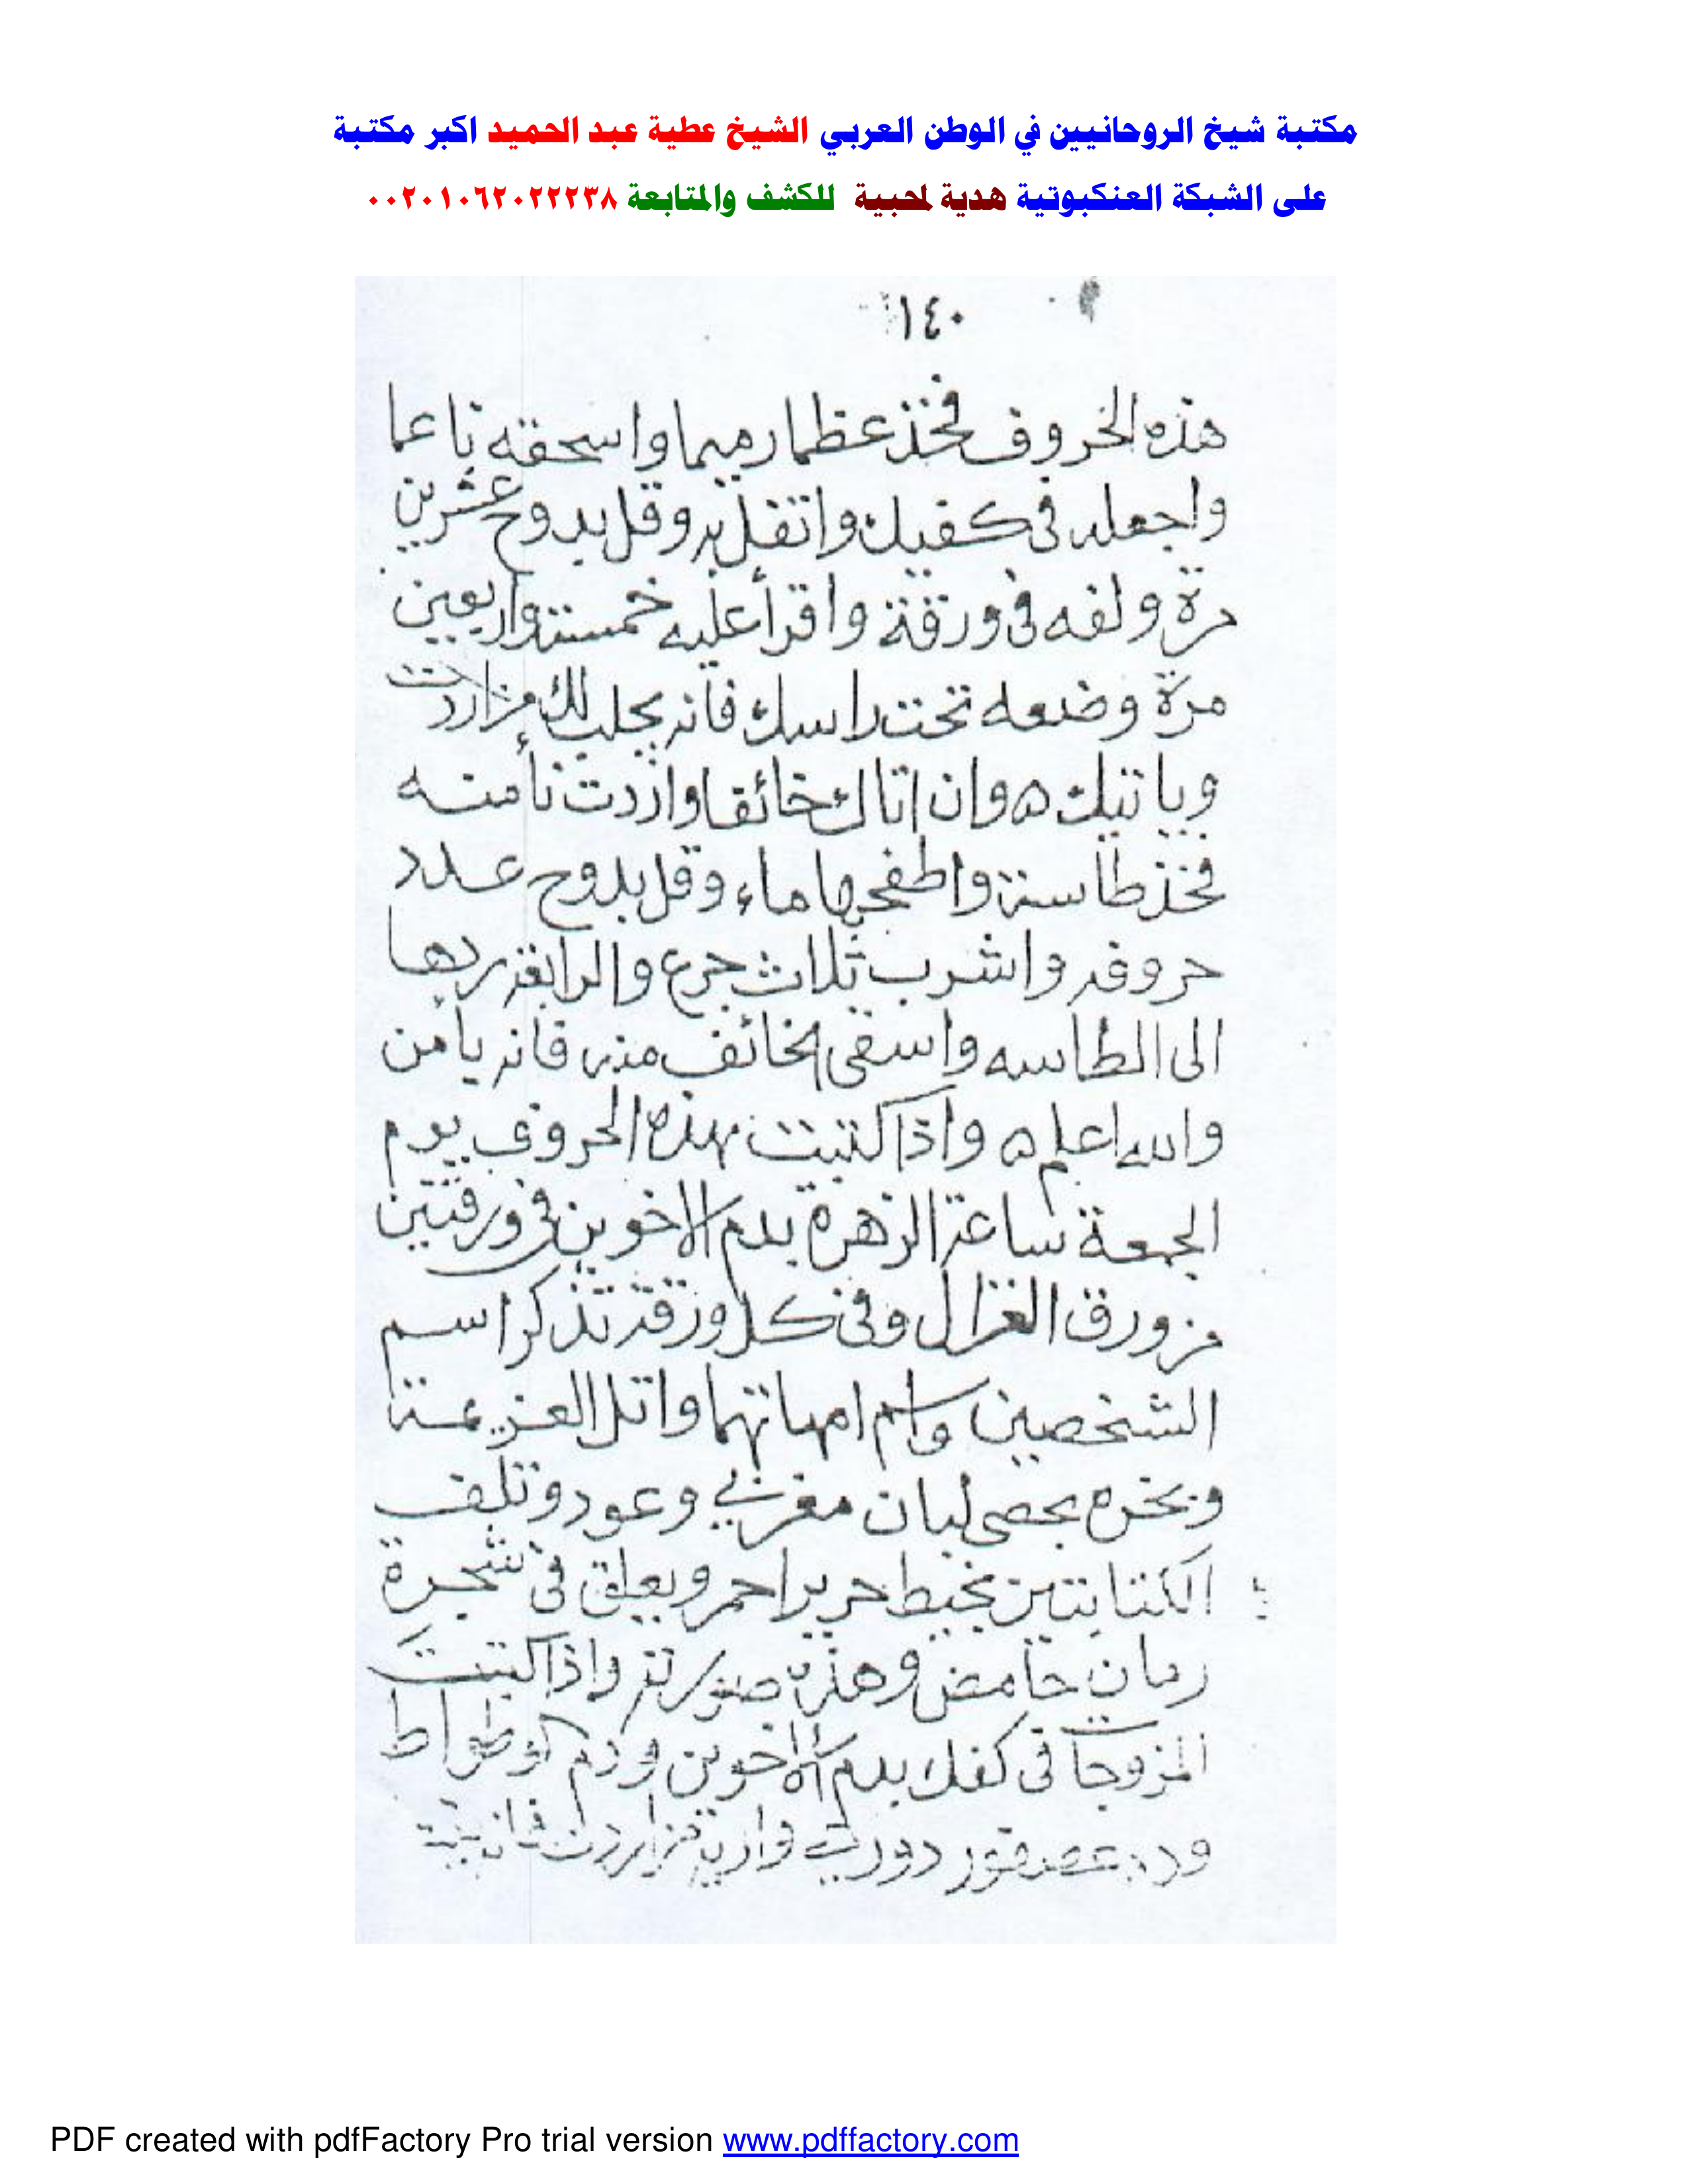 مكتبة شيخ الروحانيين في الوطن العربي الشيخ عطية عبد الحميد اكبر مكتبة
على الشبكة العنكبوتية هدية لمحبيه للكشف والمتابعة ٠٠٢٠١٠٦٢٠٢٢٢٣٨
١٤٠
هذه الخروف فخذ عظما رميما واسحقه ناعما
واجعله فى كفيك واتفل به وقل بدوح عشرين
مرة ولفه فى ورقة واقرأ عليه خمسة واربعين
مرة وضعه تحت راسك فانه يجلب لك من اردت
وياتيك ه وان اتاك خائفا واردت تأمنه
فخذ طاسة واطفحها ماء وقل بدوح عدد
حروفه واشرب ثلاث جرع والرابعة ردها
الى الطاسه واسقى الخائف منه فانه يامن
والله اعلم ه واذا كتبت بهذه الحروف يوم
الجمعة ساعة الزهرة بدم الاخوين فى ورقتين
من ورق الغزال وفى كل ورقة تذكر اسم
الشخصين واسم امهاتهما واتل العزيمة
وبخره بحصى لبان مغربي وعود وتلف
الكتابتين بخيط حرير احمر ويعلق فى شجرة
رمان حامض وهذه صورته واذا كتبت
المزوجات فى كفك بدم الاخوين ودم الوطواط
ودم عصفور دورى واريته من اردت فانه
PDF created with pdfFactory Pro trial version www.pdffactory.com